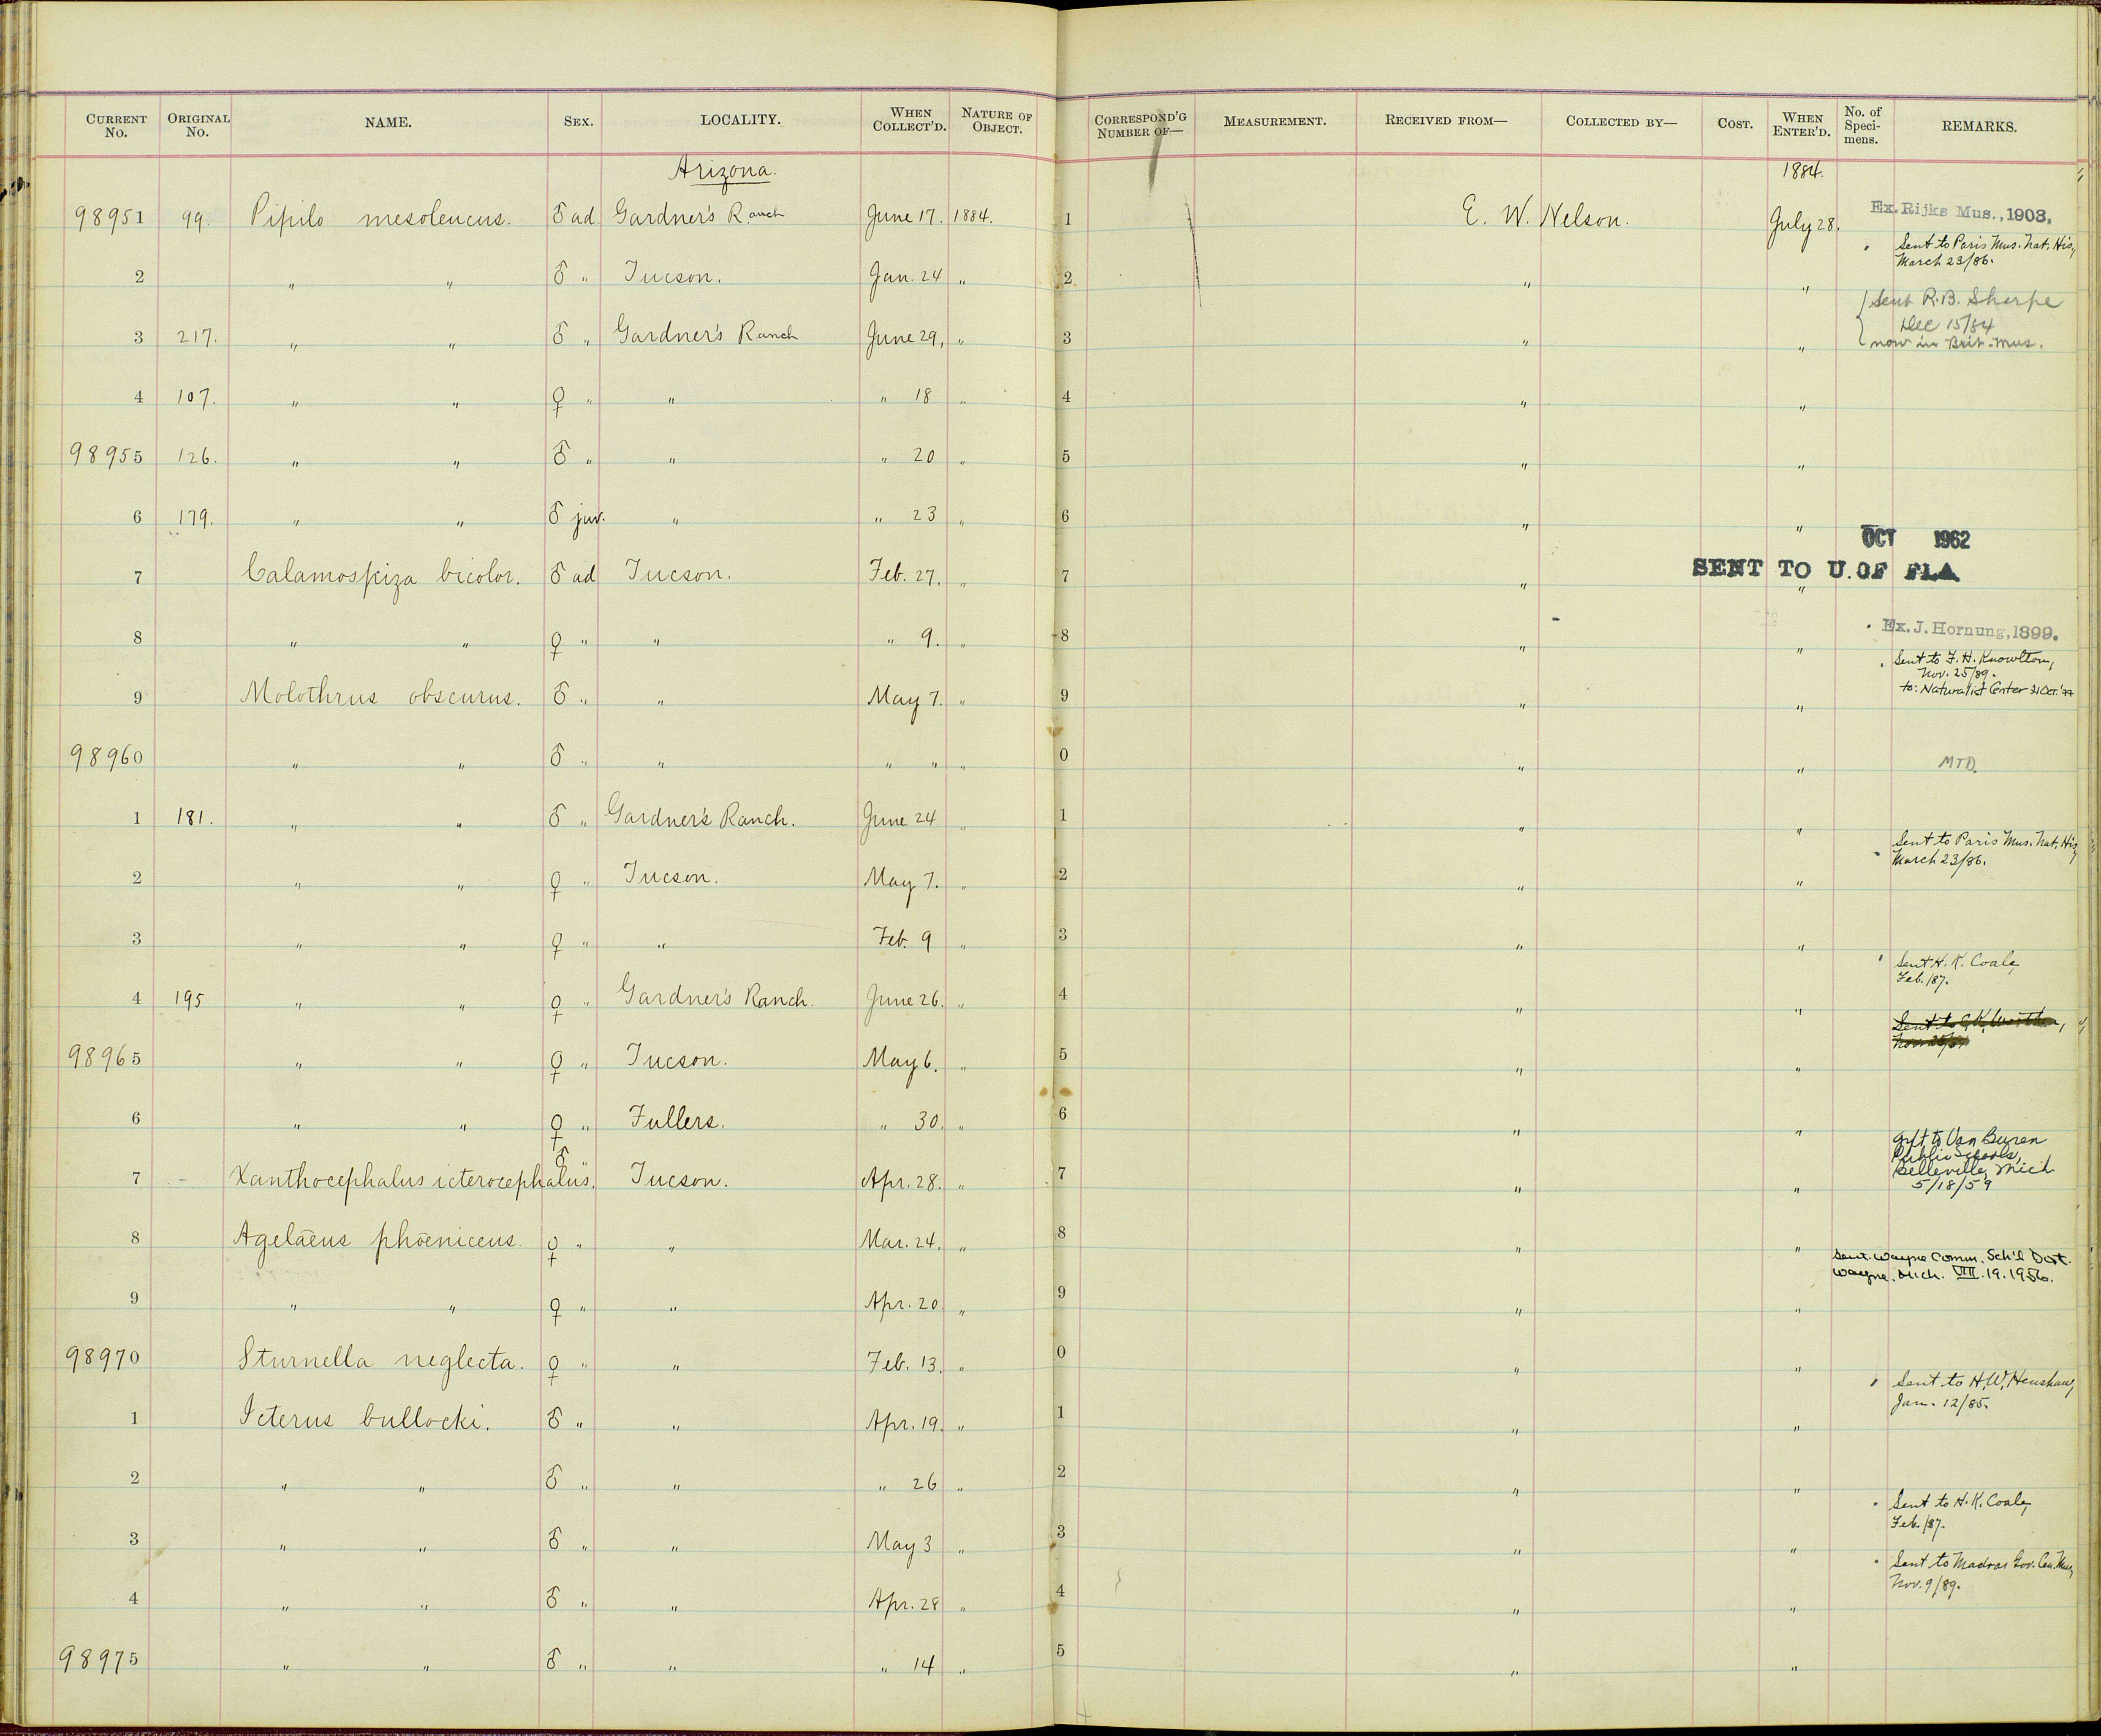 CURRENT No. ORIGINAL No. NAME. SEX. LOCALITY. WHEN COLLECT'D. NATURE OF OBJECT. CORRESPOND'G NUMBER OF— MEASUREMENT. RECEIVED FROM— COLLECTED BY— COST. WHEN ENTER'D. No. of Speci- mens. REMARKS.
Arizona. 1884.
98951 99. Pipilo mesoleucus. ♂ ad. Gardner's Ranch June 17. 1884. 1 E. W. Nelson. July 28. Ex. Rijks Mus., 1903.
Sent to Paris Mus. Nat. His,
March 23/86.
2 " " ♂ " Tucson. Jan. 24 " 2 " "
Sent R. B. Sharpe
Dec 15/84
now in Brit. Mus.
3 217. " " ♂ " Gardner's Ranch June 29, " 3 " "
4 107. " " ♀ " " " 18 " 4 " "
98955 126. " " ♂ " " " 20 " 5 " "
6 179. " " ♂ juv. " " 23 " 6 " "
OCT 1962
SENT TO U. OF FLA
7 Calamospiza bicolor. ♂ ad Tucson. Feb. 27. " 7 " "
8 " " ♀ " " " 9. " 8 " " Ex. J. Hornung, 1899.
Sent to F. H. Knowlton,
Nov. 25/89.
to: Naturalist Center 31 Oct. '77
9 Molothrus obscurus. ♂ " " May 7. " 9 " "
98960 " " ♂ " " " " " 0 " " MTD.
1 181. " " ♂ " Gardner's Ranch. June 24 " 1 " "
Sent to Paris Mus. Nat. His,
March 23/86.
2 " " ♀ " Tucson. May 7. " 2 " "
3 " " ♀ " " Feb. 9 " 3 " "
Sent H. K. Coale,
Feb. /87.
4 195 " " ♀ " Gardner's Ranch. June 26. " 4 " "
Sent to C. K. Worthen,
98965 " " ♀ " Tucson. May 6. " 5 " "
6 " " ♀ " Fullers. " 30. " 6 " "
Gift to Van Buren
Public Schools,
Belleville, Mich
5/18/59
7 Xanthocephalus icterocephalus. ♂ " Tucson. Apr. 28. " 7 " "
8 Agelaeus phoeniceus. ♀ " " Mar. 24. " 8 " "
Sent. Wayne Comm. Sch'l Dist.
Wayne. Mich. VII. 19. 1956.
9 " " ♀ " " Apr. 20 " 9 " "
98970 Sturnella neglecta. ♀ " " Feb. 13. " 0 " "
Sent to H. W. Henshaw,
Jan. 12/85.
1 Icterus bullocki. ♂ " " Apr. 19. " 1 " "
2 " " ♂ " " " 26 " 2 " "
Sent to H. K. Coale,
Feb. /87.
3 " " ♂ " " May 3 " 3 " "
Sent to Madras Gov. Cen. Mus,
Nov. 9/89.
4 " " ♂ " " Apr. 28 " 4 " "
98975 " " ♂ " " " 14 " 5 " "